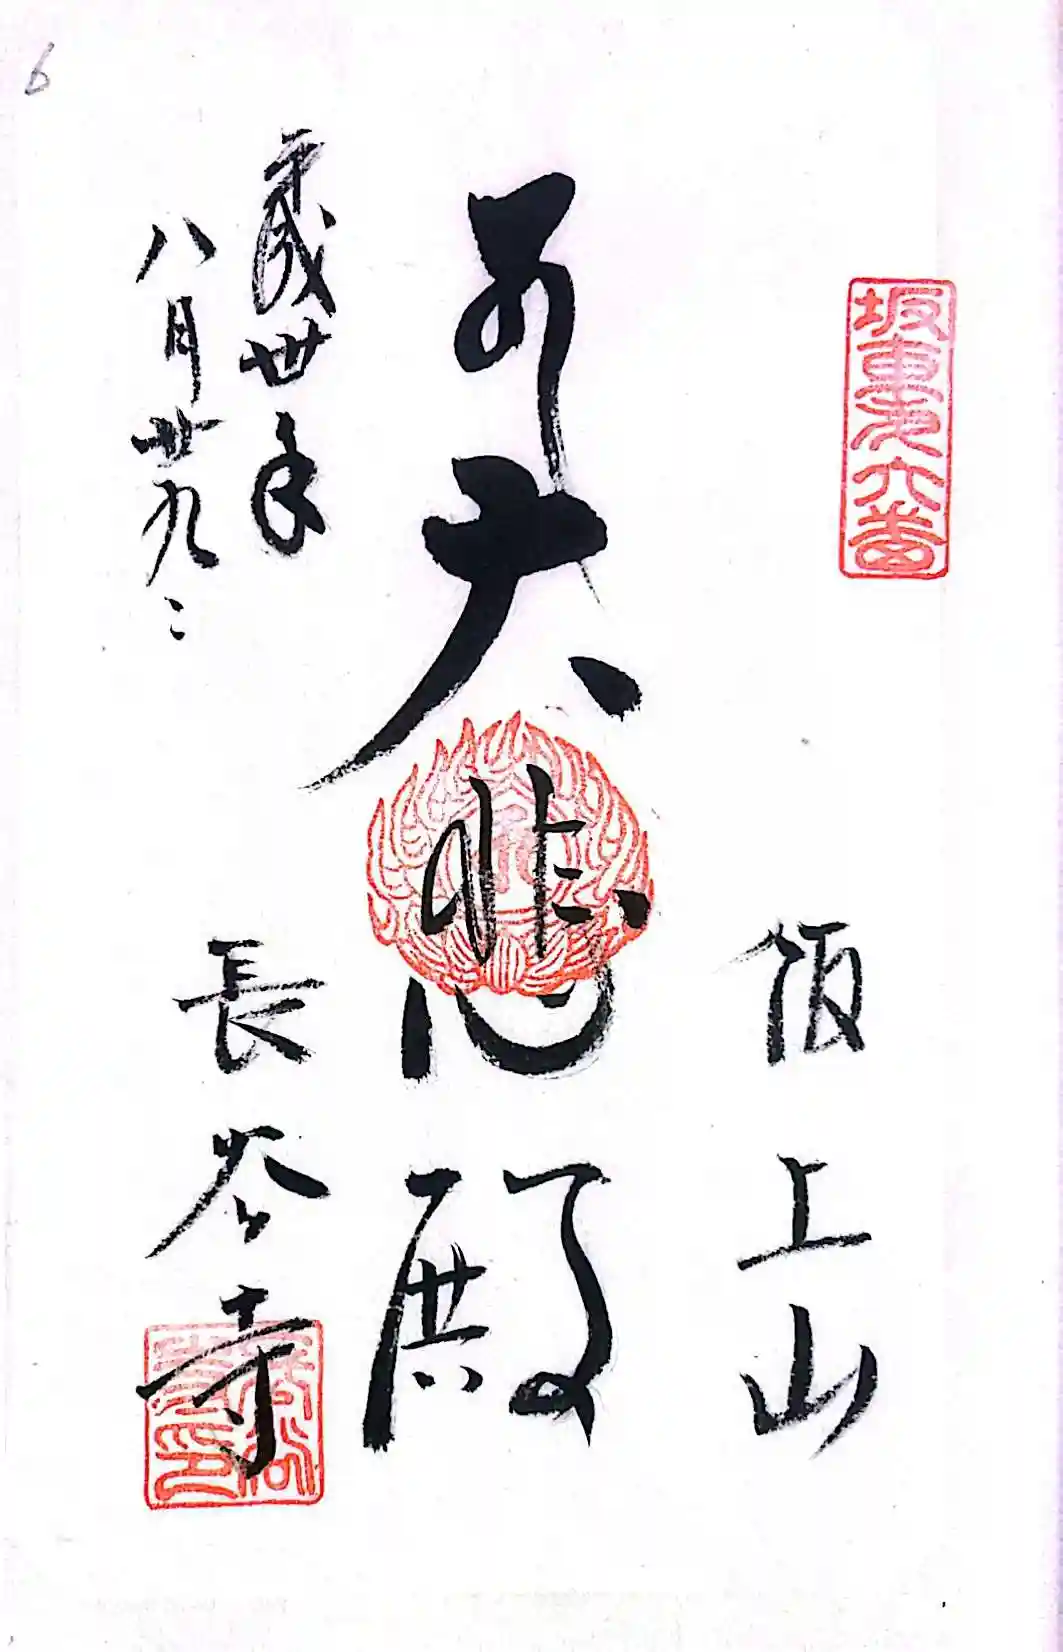 6
坂東第六番
飯上山
大悲殿
平成卅年
八月廿九日
長谷寺